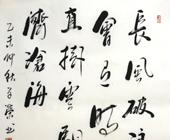 長風破
會有時
直掛雲
濟滄海
乙未仲秋